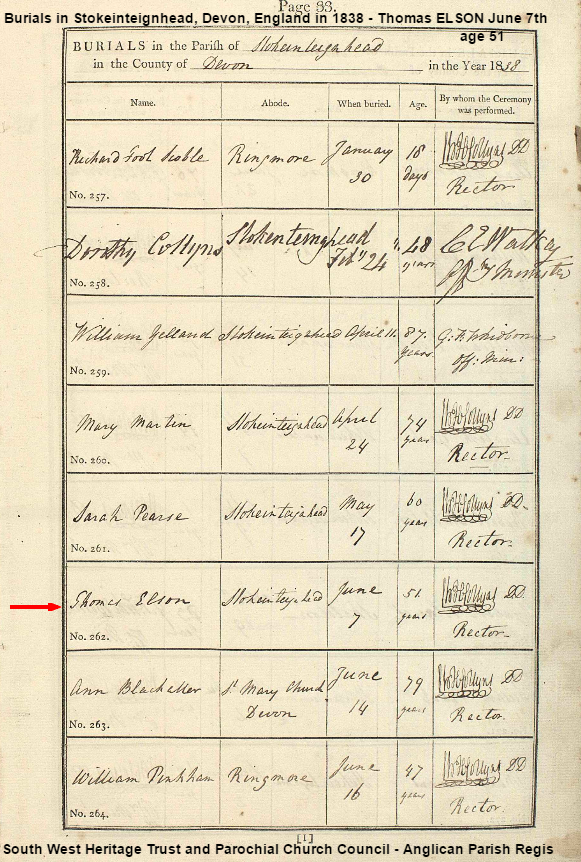 Page 33.
Burials in Stokeinteignhead, Devon, England in 1838 - Thomas ELSON June 7th
age 51
BURIALS in the Parish of Stokeinteignhead
in the County of Devon in the Year 1838
Name. Abode. When buried. Age. By whom the Ceremony was performed.
Richard Foot Ringmore January 30 18 days DD Rector
No. 257.
Dorothy Collyns Stokenteinghead Feby 24th 48 years Minister
No. 258.
William Yelland Stokeinteignhead April 11. 87. years. Off: Min:
No. 259.
Mary Martin Stokeinteignhead April 24 74 years DD Rector
No. 260.
Sarah Pearse Stokeinteignhead May 17 60 years DD Rector
No. 261.
Thomas Elson Stokeinteignhead June 7 51 years DD Rector
No. 262.
Ann Blackaller St Mary Church Devon June 14 79 years DD Rector
No. 263.
William Pinkham Ringmore June 16 47 years DD Rector
No. 264.
[1]
South West Heritage Trust and Parochial Church Council - Anglican Parish Regis